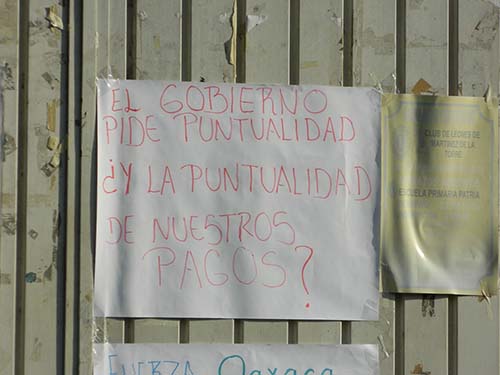 EL GOBIERNO
PIDE PUNTUALIDAD
¿Y LA PUNTUALIDAD
DE NUESTROS
PAGOS?
CLUB DE LEONES DE
MARTINEZ DE LA
TORRE
ESCUELA PRIMARIA PATRIA
FUERZA Oaxaca